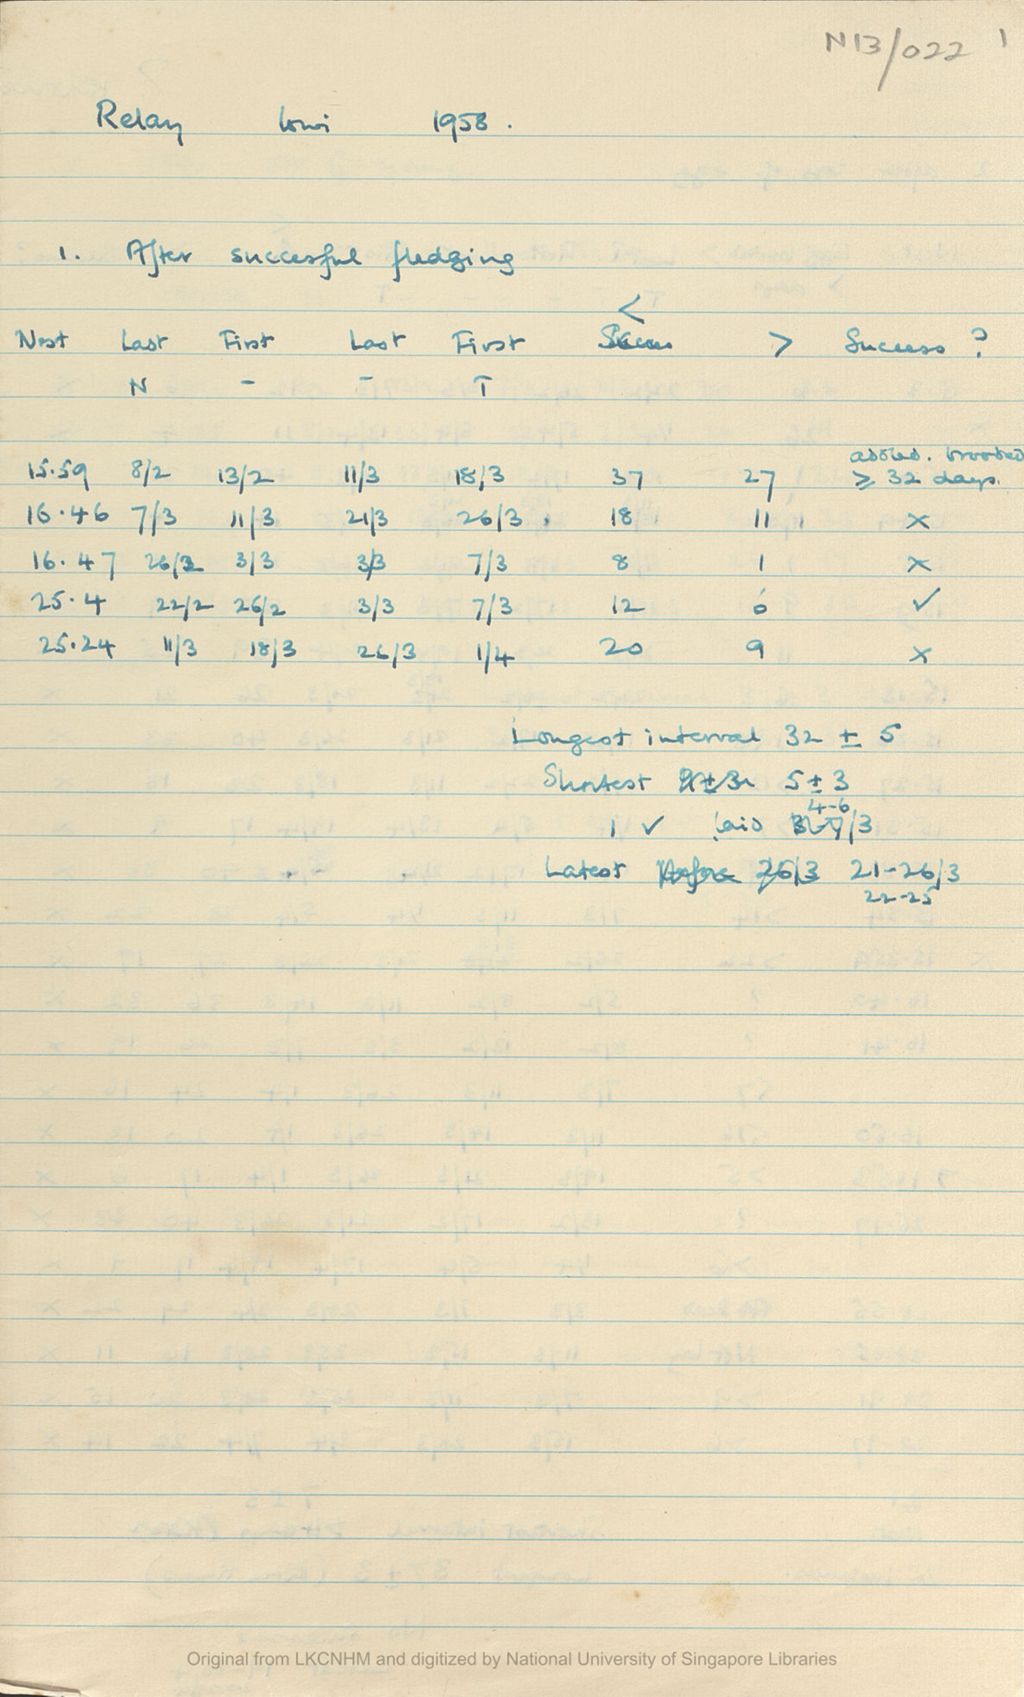 N13/022 1
Relay lowi 1958.
1. After successful fledging
<
Nest Last First Last First > Success ?
N - - T
addled. brooded
15.59 8/2 13/2 11/3 18/3 37 27 ≥ 32 days.
16.46 7/3 11/3 21/3 26/3 18 11 ×
16.47 26/2 3/3 3/3 7/3 8 1 ×
25.4 22/2 26/2 3/3 7/3 12 6 ✓
25.24 11/3 18/3 26/3 1/4 20 9 ×
Longest interval 32 ± 5
Shortest 5 ± 3
4-6
1 ✓ laid /3
Latest 21-26/3
22-25
Original from LKCNHM and digitized by National University of Singapore Libraries